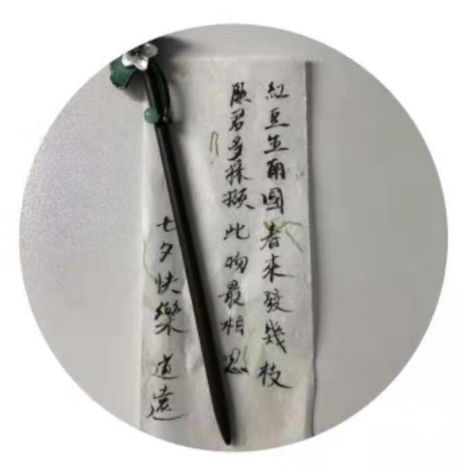 紅豆生南國春來發幾枝
願君多採擷此物最相思
七夕快樂 道遠